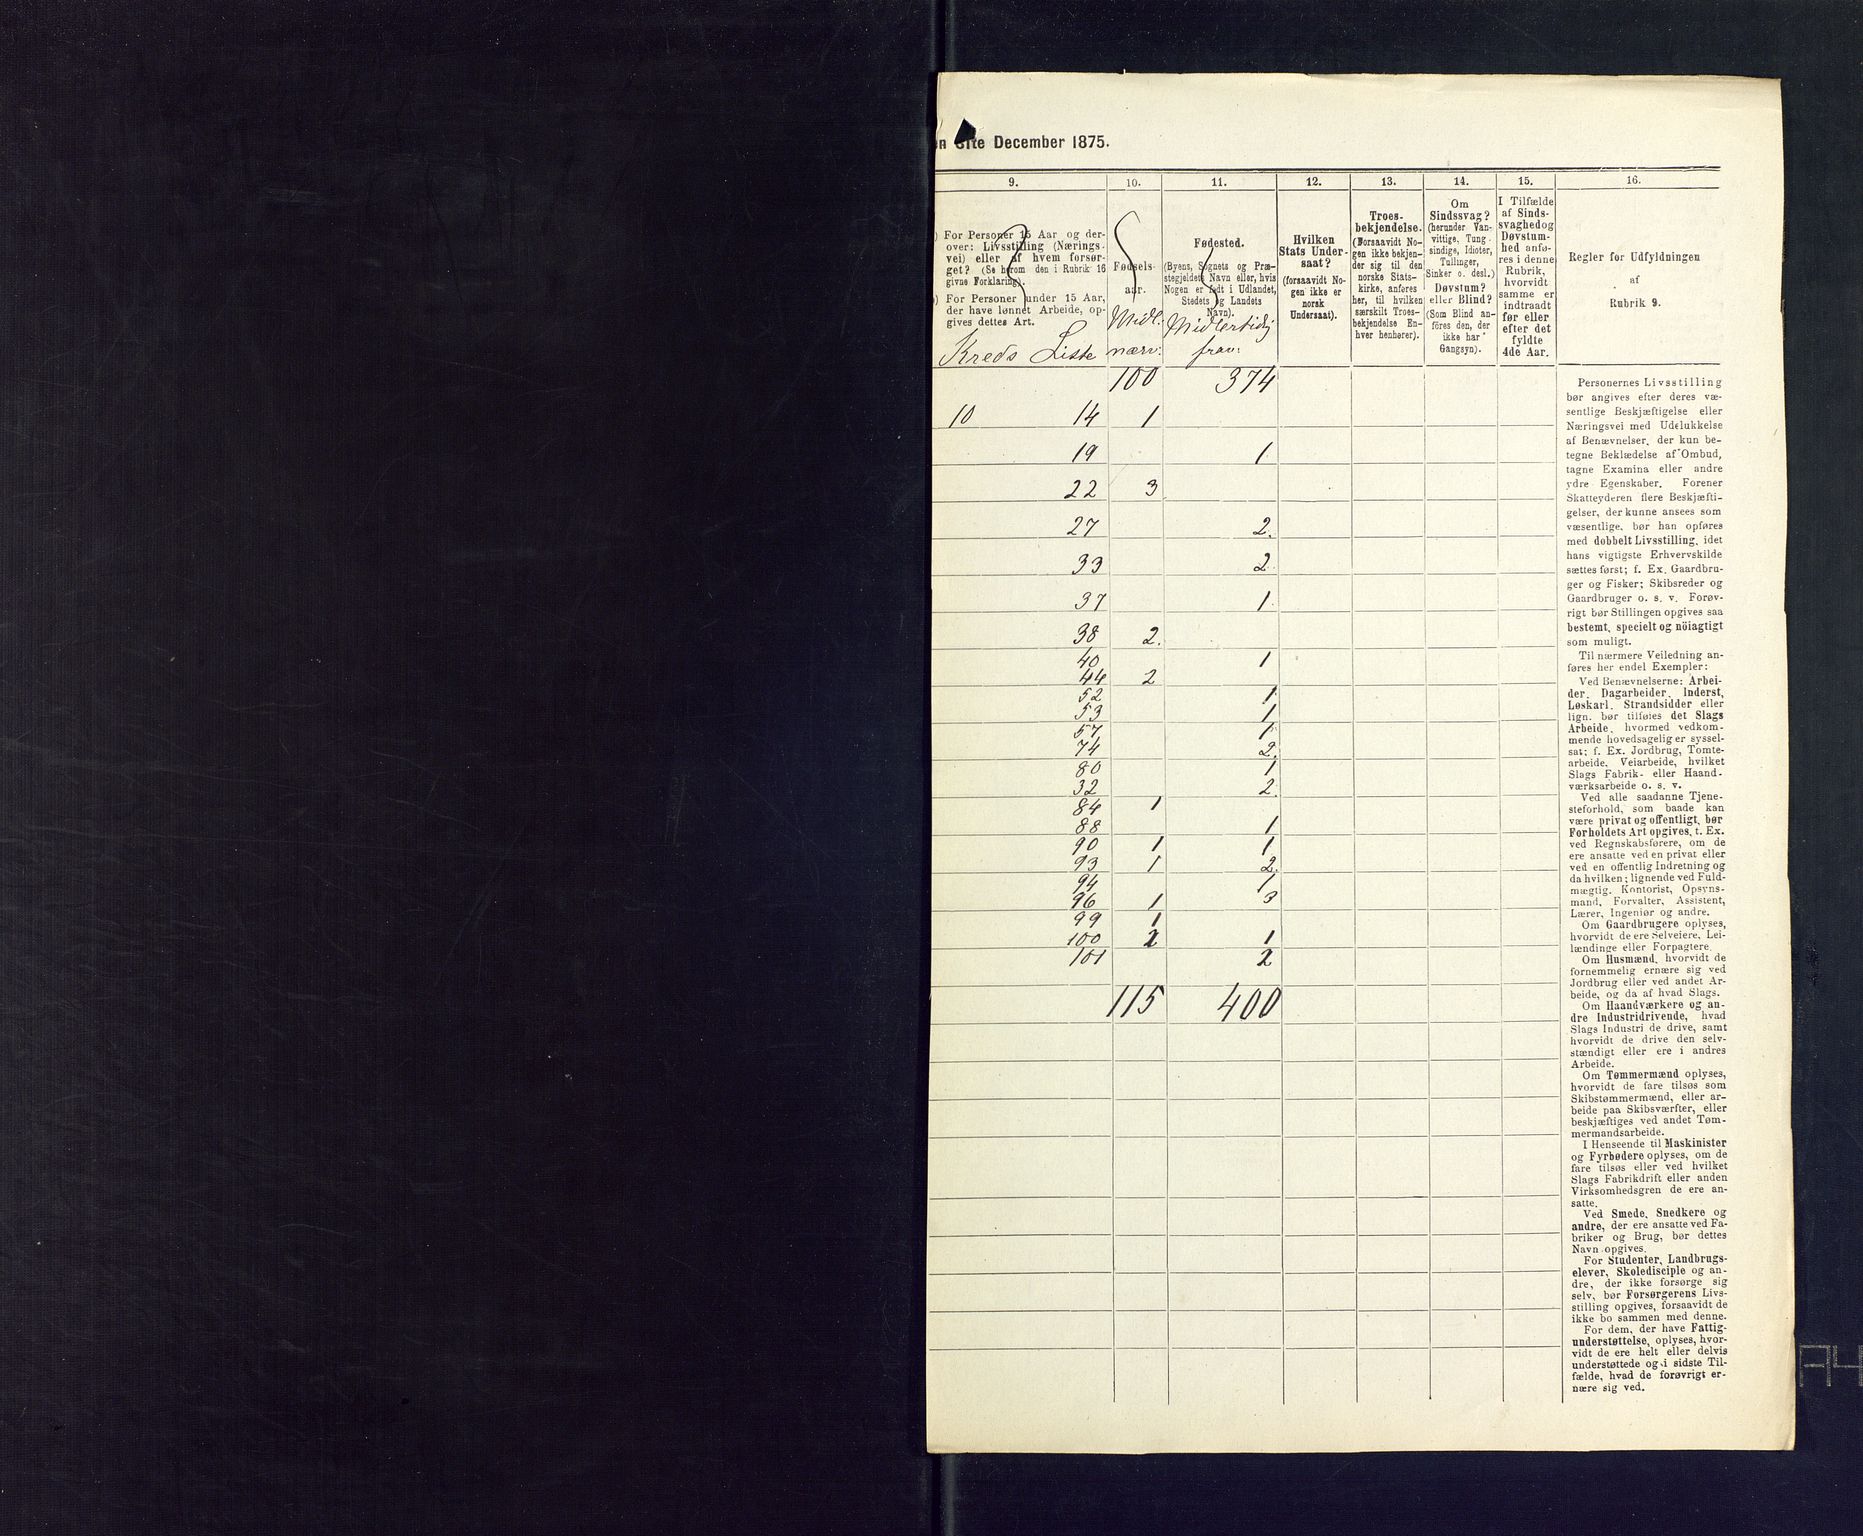 en 31te December 1875.
9. 10. 11. 12. 13. 14. 15. 16.
) For Personer 15 Aar og der-
over: Livsstilling (Nærings-
vei) eller af hvem forsør-
get? (Se herom den i Rubrik 16
givne Forklaring).
) For Personer under 15 Aar,
der have lønnet Arbeide, op-
gives dettes Art.
Kreds Liste
Fødsels-
aar.
Midl.
nærv:
Fødested.
(Byens, Sognets og Præ-
stegjeldets Navn eller, hvis
Nogen er født i Udlandet,
Stedets og Landets
Navn).
Midlertidig
frav:
Hvilken
Stats Under-
saat?
(forsaavidt No-
gen ikke er
norsk
Undersaat).
Troes-
bekjendelse.
(Forsaavidt No-
gen ikke bekjen-
der sig til den
norske Stats-
kirke, anføres
her, til hvilken
særskilt Troes-
bekjendelse En-
hver henhører).
Om
Sindssvag?
(herunder Van-
vittige, Tung-
sindige, Idioter,
Tullinger,
Sinker o. desl.)
Døvstum?
eller Blind?
(Som Blind an-
føres den, der
ikke har
Gangsyn).
I Tilfælde
af Sinds-
svaghed og
Døvstum-
hed anfø-
res i denne
Rubrik,
hvorvidt
samme er
indtraadt
før eller
efter det
fyldte
4de Aar.
Regler for Udfyldningen
af
Rubrik 9.
100 374
10 14 1
19 1
22 3
27 2.
33 2
37 1
38 2.
40 1
44 2
52 1
53 1
57 1
74 2.
80 1
32 2
84 1
88 1
90 1 1
93 1 2.
94 1
96 1 3
99 1
100 2 1
101 2
115 400
Personernes Livsstilling
bør angives efter deres væ-
sentlige Beskjæftigelse eller
Næringsvei med Udelukkelse
af Benævnelser, der kun be-
tegne Beklædelse af Ombud,
tagne Examina eller andre
ydre Egenskaber. Forener
Skatteyderen flere Beskjæfti-
gelser, der kunne ansees som
væsentlige, bør han opføres
med dobbelt Livsstilling, idet
hans vigtigste Erhvervskilde
sættes først; f. Ex. Gaardbru-
ger og Fisker; Skibsreder og
Gaardbruger o. s. v. Forøv-
rigt bør Stillingen opgives saa
bestemt, specielt og nöiagtigt
som muligt.
Til nærmere Veiledning an-
føres her endel Exempler:
Ved Benævnelserne: Arbei-
der, Dagarbeider, Inderst,
Løskarl, Strandsidder eller
lign. bør tilføies det Slags
Arbeide, hvormed vedkom-
mende hovedsagelig er syssel-
sat; f. Ex. Jordbrug, Tomte-
arbeide, Veiarbeide, hvilket
Slags Fabrik- eller Haand-
værksarbeide o. s. v.
Ved alle saadanne Tjene-
steforhold, som baade kan
være privat og offentligt, bør
Forholdets Art opgives, t. Ex.
ved Regnskabsførere, om de
ere ansatte ved en privat eller
ved en offentlig Indretning og
da hvilken; lignende ved Fuld-
mægtig, Kontorist, Opsyns-
mand, Forvalter, Assistent,
Lærer, Ingeniør og andre.
Om Gaardbrugere oplyses,
hvorvidt de ere Selveiere, Lei-
lændinge eller Forpagtere.
Om Husmænd, hvorvidt de
fornemmelig ernære sig ved
Jordbrug eller ved andet Ar-
beide, og da af hvad Slags.
Om Haandværkere og an-
dre Industridrivende, hvad
Slags Industri de drive, samt
hvorvidt de drive den selv-
stændigt eller ere i andres
Arbeide.
Om Tømmermænd oplyses,
hvorvidt de fare tilsøs som
Skibstømmermænd, eller ar-
beide paa Skibsværfter, eller
beskjæftiges ved andet Tøm-
mermandsarbeide.
I Henseende til Maskinister
og Fyrbødere oplyses, om de
fare tilsøs eller ved hvilket
Slags Fabrikdrift eller anden
Virksomhedsgren de ere an-
satte.
Ved Smede, Snedkere og
andre, der ere ansatte ved Fa-
briker og Brug, bør dettes
Navn opgives.
For Studenter, Landbrugs-
elever, Skoledisciple og an-
dre, der ikke forsørge sig
selv, bør Forsørgerens Livs-
stilling opgives, forsaavidt de
ikke bo sammen med denne.
For dem, der have Fattig-
understøttelse, oplyses, hvor-
vidt de ere helt eller delvis
understøttede og i sidste Til-
fælde, hvad de forøvrigt er-
nære sig ved.
A4